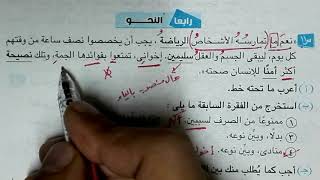 رابعاً النحو
س١ «نعم ما تمارسه الأشخاص الرياضة، يجب أن يخصصوا نصف ساعة من وقتهم
كل يوم، ليبقى الجسم والعقل سليمين. إخواني، تمتعوا بفوائدها الجمة، وتلك نصيحة
أكثر أمنًا للإنسان صحته».
حال منصوبة بالياء
(أ) أعرب ما تحته خط.
(ب) استخرج من الفقرة السابقة ما يلي:
(١) ممنوعًا من الصرف لسببين.
(٢) بدلًا، وبيّن نوعه.
(٤) منادى، وبيّن نوعه.
(ج) أجب كما يُطلب منك بين